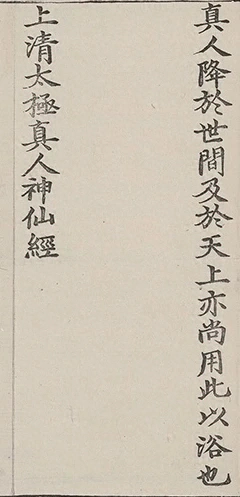 真人降於世間及於天上亦尚用此以浴也
上清太極真人神仙經